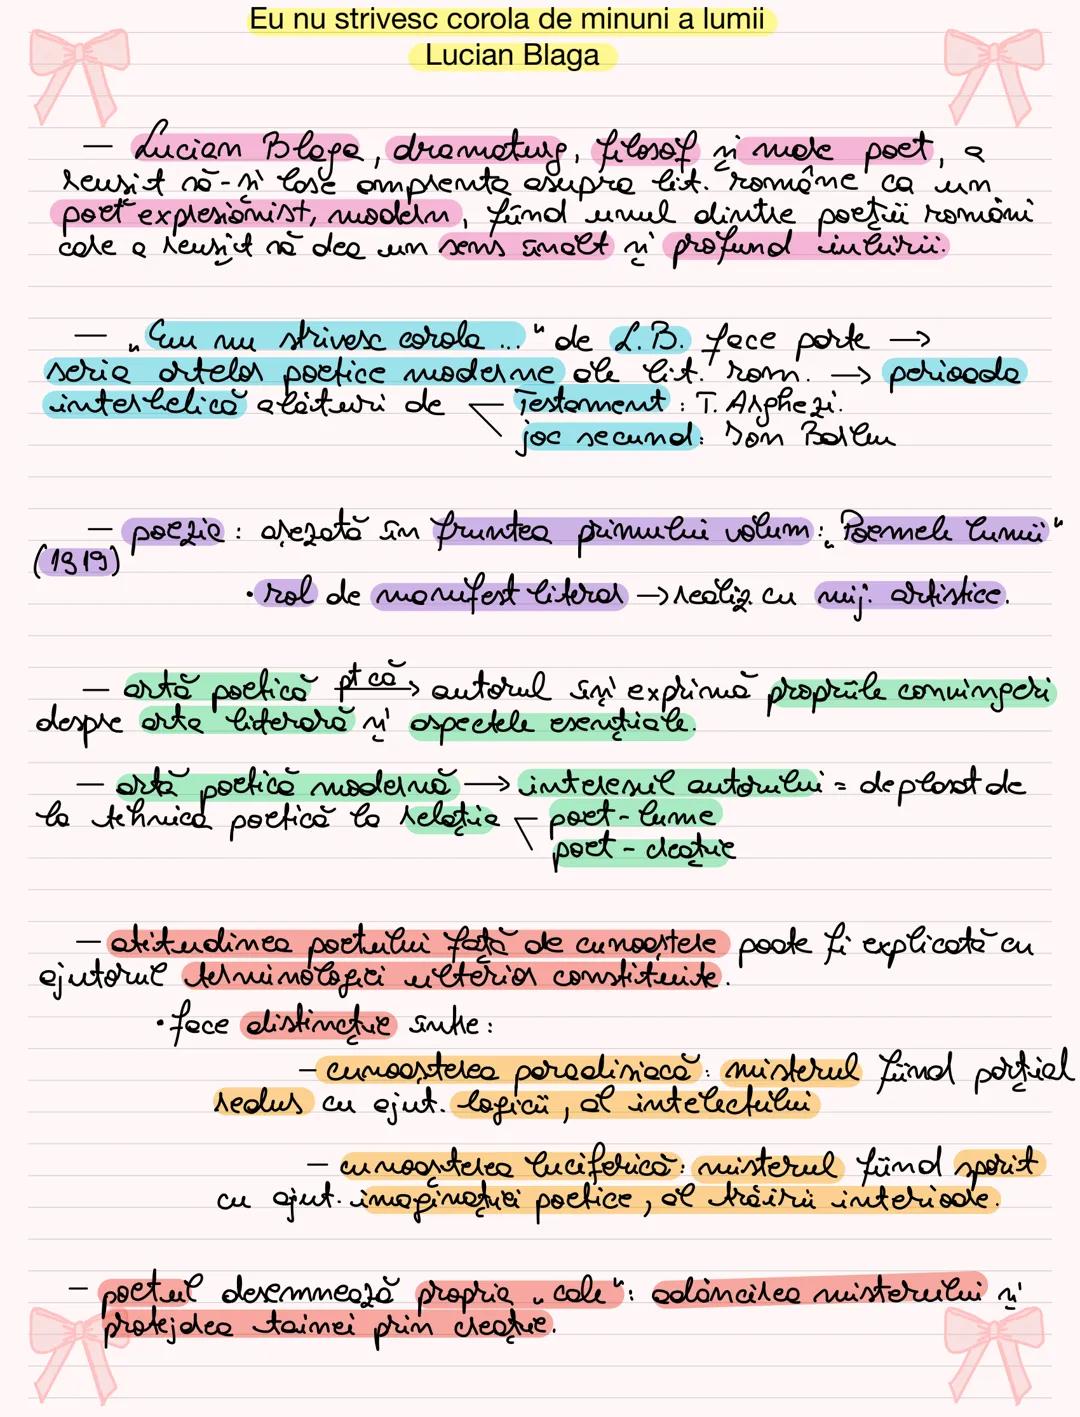 Eu nu strivesc corola de minuni a lumii
Lucian Blaga
— Lucian Blaga, dramaturg, filosof și mare poet, a
reușit să-și lase amprenta asupra lit. române ca un
poet expresionist, modern, fiind unul dintre poeții români
care a reușit să dea un sens înalt și profund iubirii.
— „Eu nu strivesc corola ..." de L.B. face parte →
seria artelor poetice moderne ale lit. rom. → perioada
interbelică alături de Testament : T. Arghezi.
joc secund: Ion Barbu
— poezia : așezată în fruntea primului volum: „Poemele luminii"
(1919)
• rol de manifest literar → realiz. cu mij. artistice.
— artă poetică pt că → autorul își exprimă propriile convingeri
despre arta literară și aspectele esențiale.
— artă poetică modernă → interesul autorului = deplasat de
la tehnica poetică la relația poet - lume
poet - creație
— atitudinea poetului față de cunoaștere poate fi explicată cu
ajutorul terminologiei ulterior constituite.
• face distincție între :
— cunoașterea paradisiacă: misterul fiind parțial
redus cu ajut. logicii, al intelectului
— cunoașterea luciferică: misterul fiind sporit
cu ajut. imaginației poetice, al trăirii interioare.
— poetul desemnează propria „cale": adâncirea misterului și
protejarea tainei prin creație.